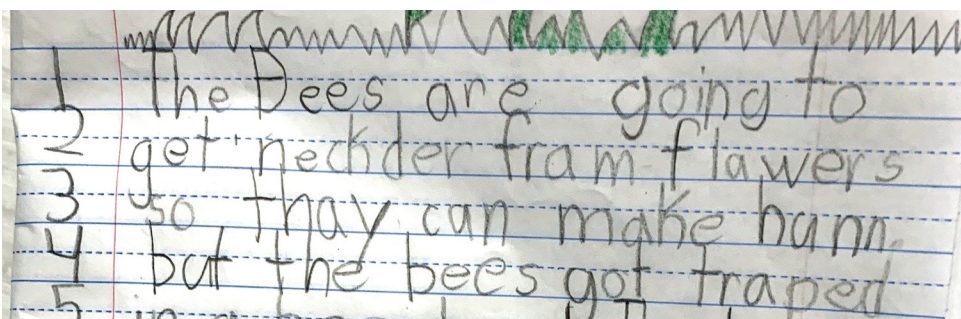 1 The Bees are going to
2 get nechder fram flawers
3 so thay can make hunn
4 but the bees got traped
5